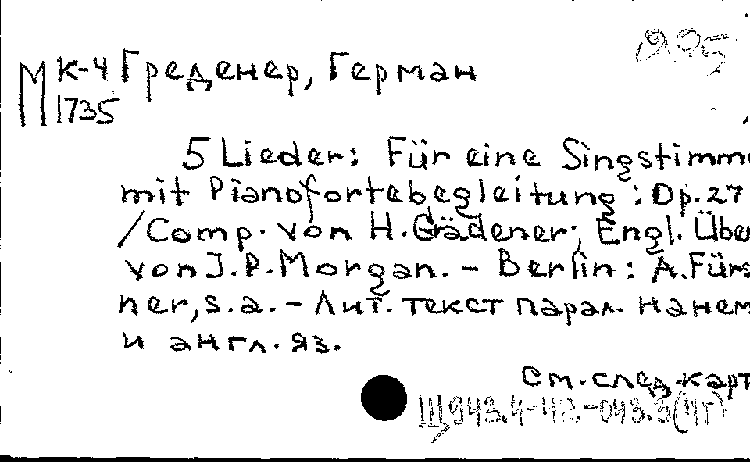 995
М К-4 Греденер, Герман
1735
5 Lieder: Für eine Singstimm
mit Pianofortebegleitung: Op. 27
/Comp. von H. Grädener; Engl. Übe
von J. P. Morgan. - Berlin: A. Fürs
ner, s.a. - Лит. текст парал. на нем
и англ. яз.
см. след. карт
Щ943.4-43-043.3(4Г)